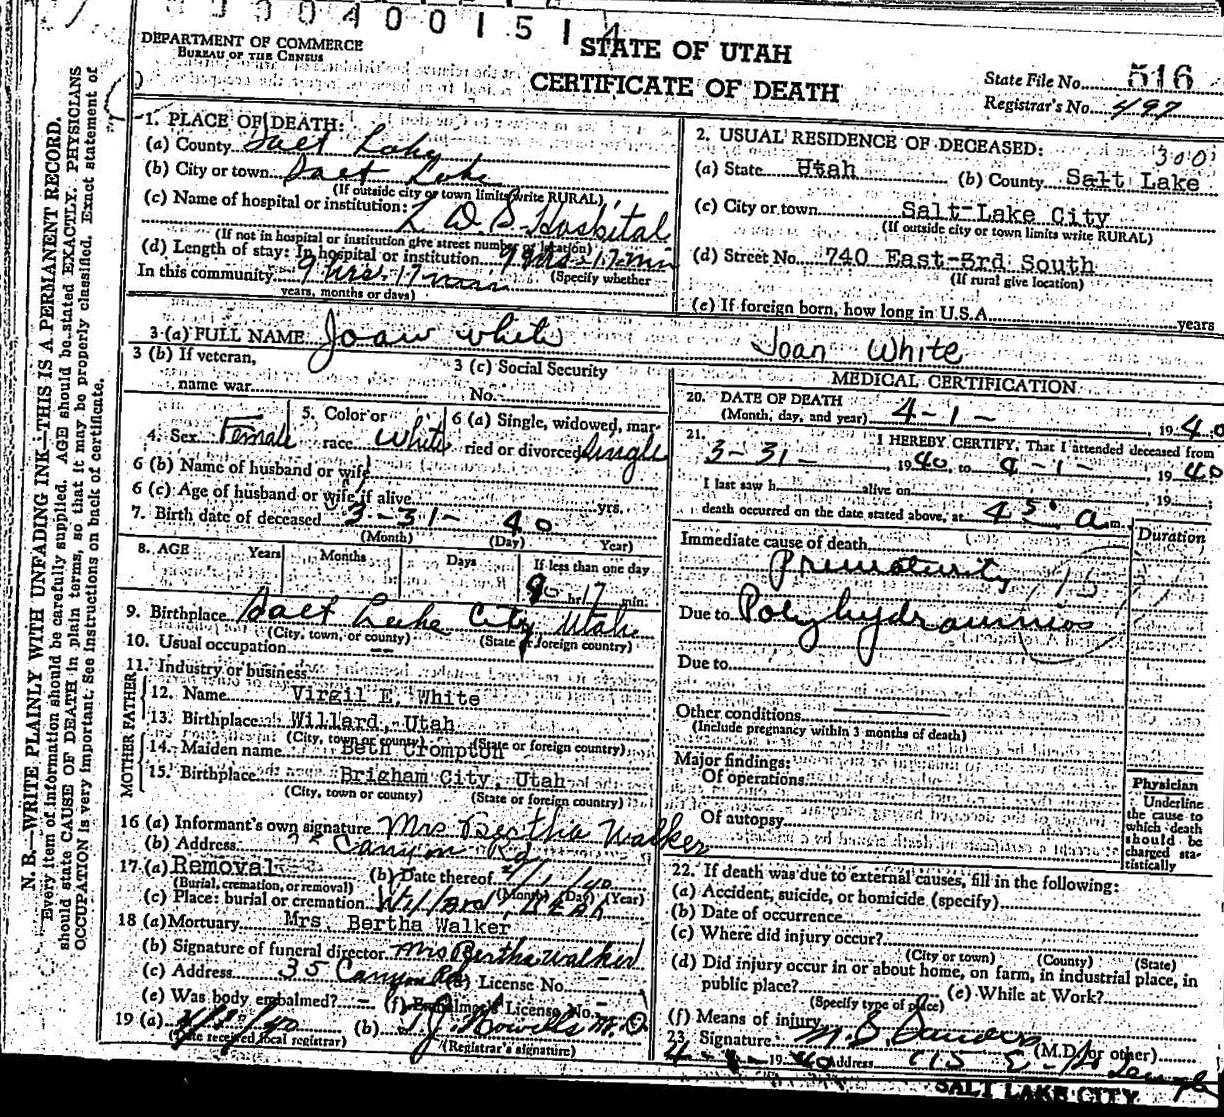 0 0 4 0 0 1 5 1 4
DEPARTMENT OF COMMERCE
BUREAU OF THE CENSUS
STATE OF UTAH
CERTIFICATE OF DEATH
State File No. 516
Registrar's No. 497
N. B.—WRITE PLAINLY WITH UNFADING INK—THIS IS A PERMANENT RECORD.
Every item of information should be carefully supplied. AGE should be stated EXACTLY. PHYSICIANS
should state CAUSE OF DEATH in plain terms, so that it may be properly classified. Exact statement of
OCCUPATION is very important. See instructions on back of certificate.
1. PLACE OF DEATH:
(a) County Salt Lake
(b) City or town Salt Lake
(If outside city or town limits write RURAL)
(c) Name of hospital or institution: L. D. S. Hospital
(If not in hospital or institution give street number or location)
(d) Length of stay: In hospital or institution 9 hrs-17 min
(Specify whether
In this community 9 hrs-17 min
years, months or days)
2. USUAL RESIDENCE OF DECEASED:
300
(a) State Utah (b) County Salt Lake
(c) City or town Salt Lake City
(If outside city or town limits write RURAL)
(d) Street No. 740 East-3rd South
(If rural give location)
(e) If foreign born, how long in U.S.A. years
3 (a) FULL NAME Joan White Joan White
3 (b) If veteran,
name war
3 (c) Social Security
No.
4. Sex Female
5. Color or
race White
6 (a) Single, widowed, mar-
ried or divorced Single
6 (b) Name of husband or wife
6 (c) Age of husband or wife if alive yrs.
7. Birth date of deceased 3-31-40
(Month) (Day) Year)
8. AGE Years Months Days If less than one day
9 hr. 17 min.
9. Birthplace Salt Lake City Utah
(City, town, or county) (State or foreign country)
10. Usual occupation --
11. Industry or business
FATHER
12. Name Virgil E. White
13. Birthplace Willard, Utah
(City, town or county) (State or foreign country)
MOTHER
14. Maiden name Beth Crompton
15. Birthplace Brigham City, Utah
(City, town or county) (State or foreign country)
16 (a) Informant's own signature Mrs Bertha Walker
(b) Address Canyon Rd
17. (a) Removal (b) Date thereof 4/1/40
(Burial, cremation, or removal) (Month) (Day) (Year)
(c) Place: burial or cremation Willard, Utah
18 (a) Mortuary Mrs. Bertha Walker
(b) Signature of funeral director Mrs Bertha Walker
(c) Address 35 Canyon Rd License No.
(e) Was body embalmed? - (f) Embalmer's License No. -
19 (a) 4/ /40 (b) Howells M.D.
(Date received local registrar) (Registrar's signature)
MEDICAL CERTIFICATION
20. DATE OF DEATH
(Month, day, and year) 4-1- 1940
21. I HEREBY CERTIFY, That I attended deceased from
3-31-, 1940 to 4-1-, 1940
I last saw h alive on , 19 ;
death occurred on the date stated above, at 4 50 a m.
Duration
Immediate cause of death
Prematurity
Due to Polyhydramnios
Due to
Other conditions
(Include pregnancy within 3 months of death)
Major findings:
Of operations
Of autopsy
Physician
Underline
the cause to
which death
should be
charged sta-
tistically
22. If death was due to external causes, fill in the following:
(a) Accident, suicide, or homicide (specify)
(b) Date of occurrence
(c) Where did injury occur?
(City or town) (County) (State)
(d) Did injury occur in or about home, on farm, in industrial place, in
public place? (e) While at Work?
(Specify type of place)
(f) Means of injury
23. Signature M. S. Sanders
(M.D. or other)
4-1-1940 Address 115 E- So Temple
SALT LAKE CITY